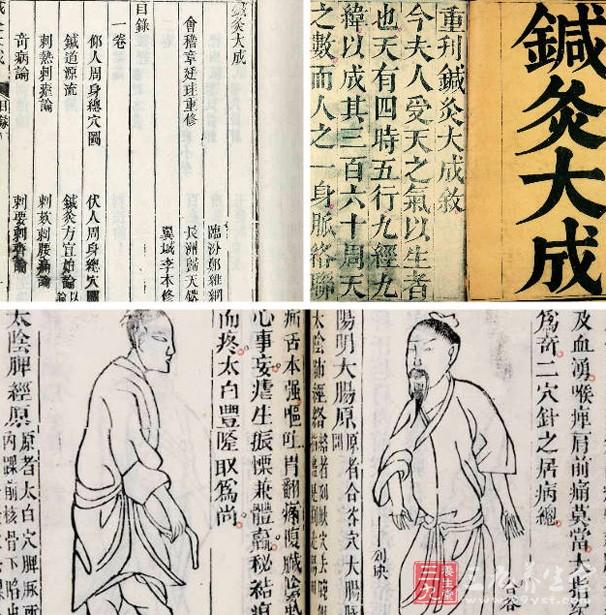 鍼灸大成
重刊鍼灸大成敘
今夫人受天之氣以生者
也天有四時五行九經九
緯以成其三百六十周天
之數而人之一身脈絡聯
鍼灸大成
會稽章廷珪重修
目錄
一卷
仰人周身總穴圖
伏人周身總穴圖
鍼道源流
鍼灸方宜始論
刺熱刺瘧論
刺欬刺腰痛論
奇病論
刺要刺齊論
及血湧喉痺肩前痛莫當大指
爲奇二穴針之居病總
陽明大腸原
原者合谷穴大腸
列缺
合谷
病舌本強嘔吐胃翻疼腹臟
心事妄瘧生振慄兼體羸秘結
而疼太白豐隆取爲尚
太陰脾經原
原者太白穴脾脈
內踝前核骨下陷中
三九養生堂